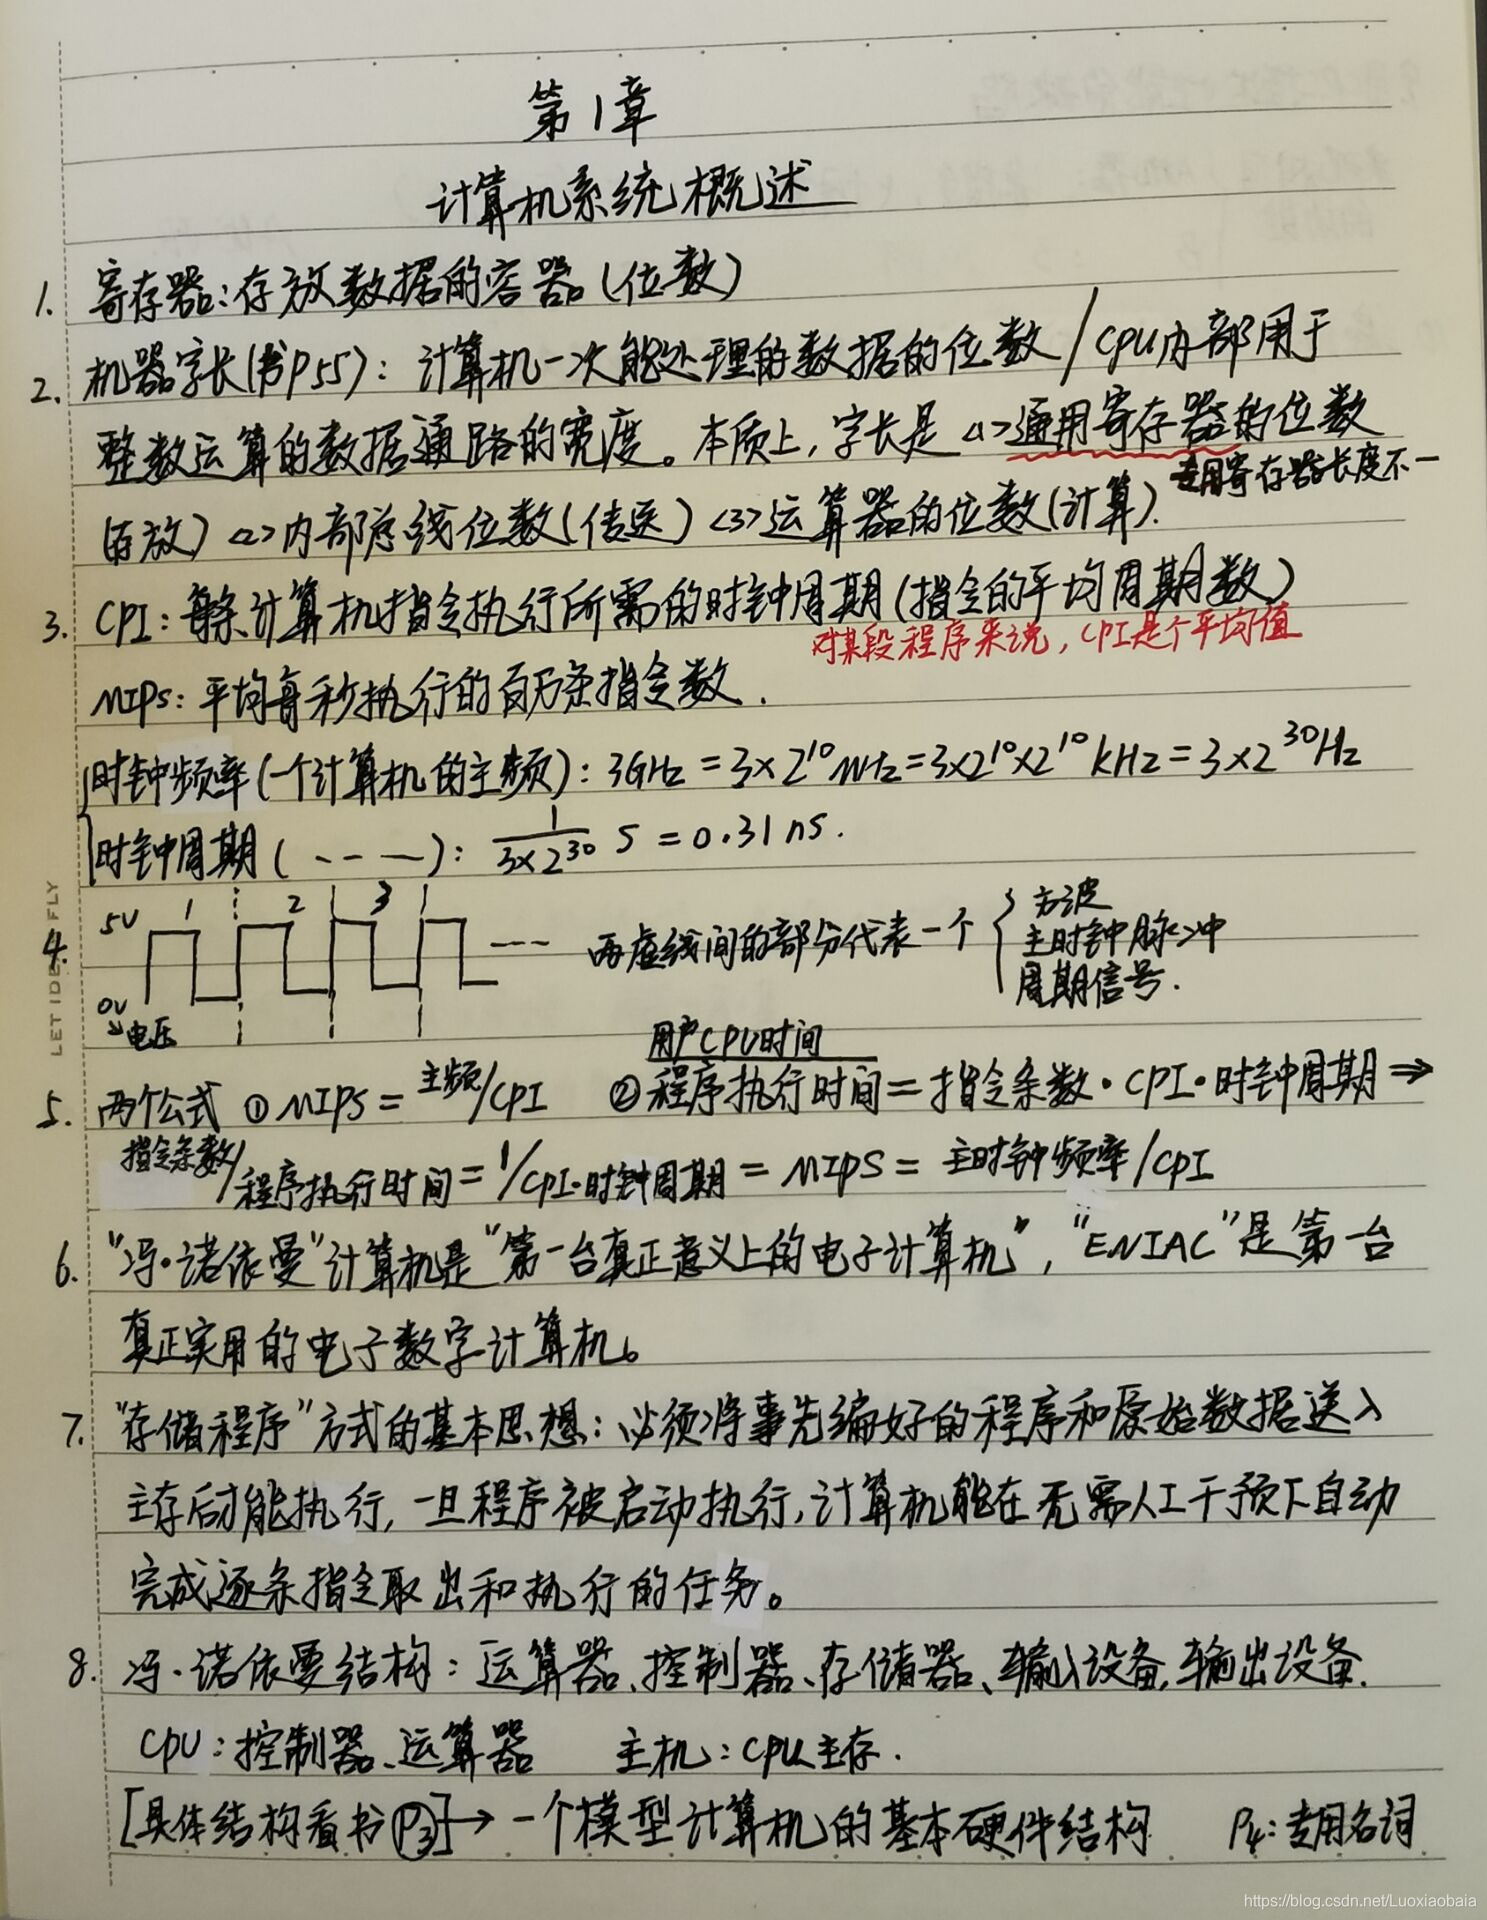 第1章
计算机系统概述
1. 寄存器:存放数据的容器(位数)
2. 机器字长(书P55): 计算机一次能处理的数据的位数/CPU内部用于
整数运算的数据通路的宽度。本质上,字长是<1>通用寄存器的位数
专用寄存器长度不一
(存放) <2>内部总线位数(传送) <3>运算器的位数(计算).
3. CPI: 每条计算机指令执行所需的时钟周期(指令的平均周期数)
对某段程序来说, CPI是个平均值
MIPS: 平均每秒执行的百万条指令数.
时钟频率(一个计算机的主频): 3GHz = 3×2^10 MHz = 3×2^10×2^10 kHz = 3×2^30 Hz
时钟周期( - - — ): 1/(3×2^30) S = 0.31ns.
4.
5V 1 2 3
--- 两虚线间的部分代表一个 { 方波
主时钟脉冲
周期信号.
0V
电压
用户CPU时间
5. 两个公式 ①MIPS = 主频/CPI ②程序执行时间=指令条数·CPI·时钟周期 ⇒
指令条数/程序执行时间 = 1/CPI·时钟周期 = MIPS = 主时钟频率/CPI
6. "冯·诺依曼"计算机是"第一台真正意义上的电子计算机", "ENIAC"是第一台
真正实用的电子数字计算机。
7. "存储程序"方式的基本思想: 必须将事先编好的程序和原始数据送入
主存后才能执行, 一旦程序被启动执行,计算机能在无需人工干预下自动
完成逐条指令取出和执行的任务。
8. 冯·诺依曼结构: 运算器、控制器、存储器、输入设备,输出设备.
CPU: 控制器、运算器 主机: CPU、主存.
[具体结构看书P3]→一个模型计算机的基本硬件结构 P4: 专用名词
LET IDEA FLY
https://blog.csdn.net/Luoxiaobaia